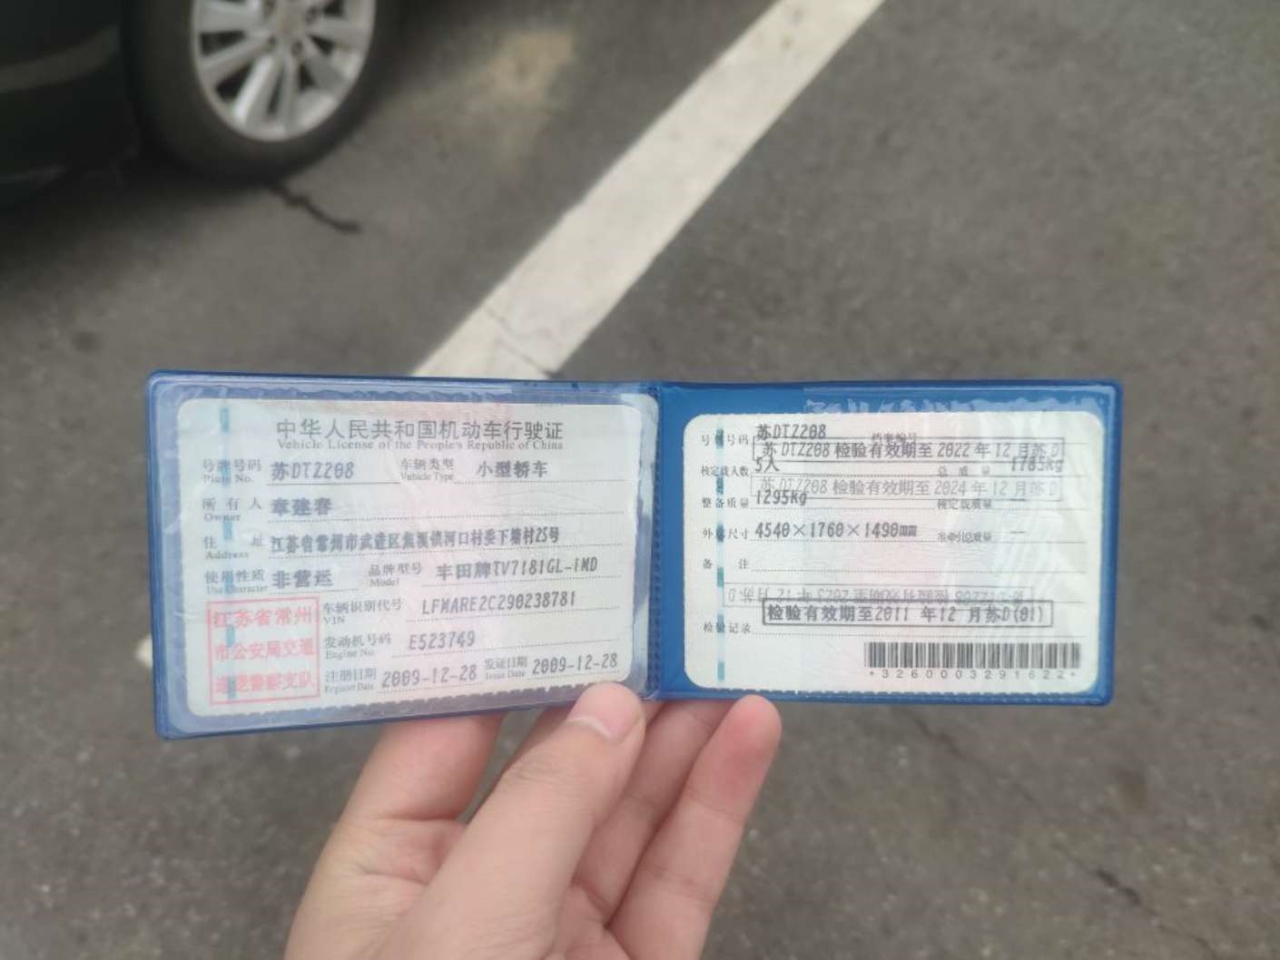 中华人民共和国机动车行驶证
Vehicle License of the People's Republic of China
号牌号码 苏DTZ208 车辆类型 小型轿车
Plate No. Vehicle Type
所有人 章建春
Owner
住址 江苏省常州市武进区焦溪镇河口村委下塘村25号
Address
使用性质 非营运 品牌型号 丰田牌TV7181GL-IMD
Use Character Model
江苏省常州
市公安局交通
巡逻警察支队
车辆识别代号 LFMARE2C290238781
VIN
发动机号码 E523749
Engine No.
注册日期 2009-12-28 发证日期 2009-12-28
Register Date Issue Date
号牌号码 苏DTZ208 档案编号
苏DTZ208 检验有效期至 2022 年 12 月苏D
核定载人数 5人 总质量 1785kg
苏DTZ208 检验有效期至 2024 年 12 月苏D
整备质量 1295kg 核定载质量
外廓尺寸 4540×1760×1490mm 准牵引总质量 —
备注
检验有效期至2011 年12 月苏D(01)
检验记录
*3260003291622*